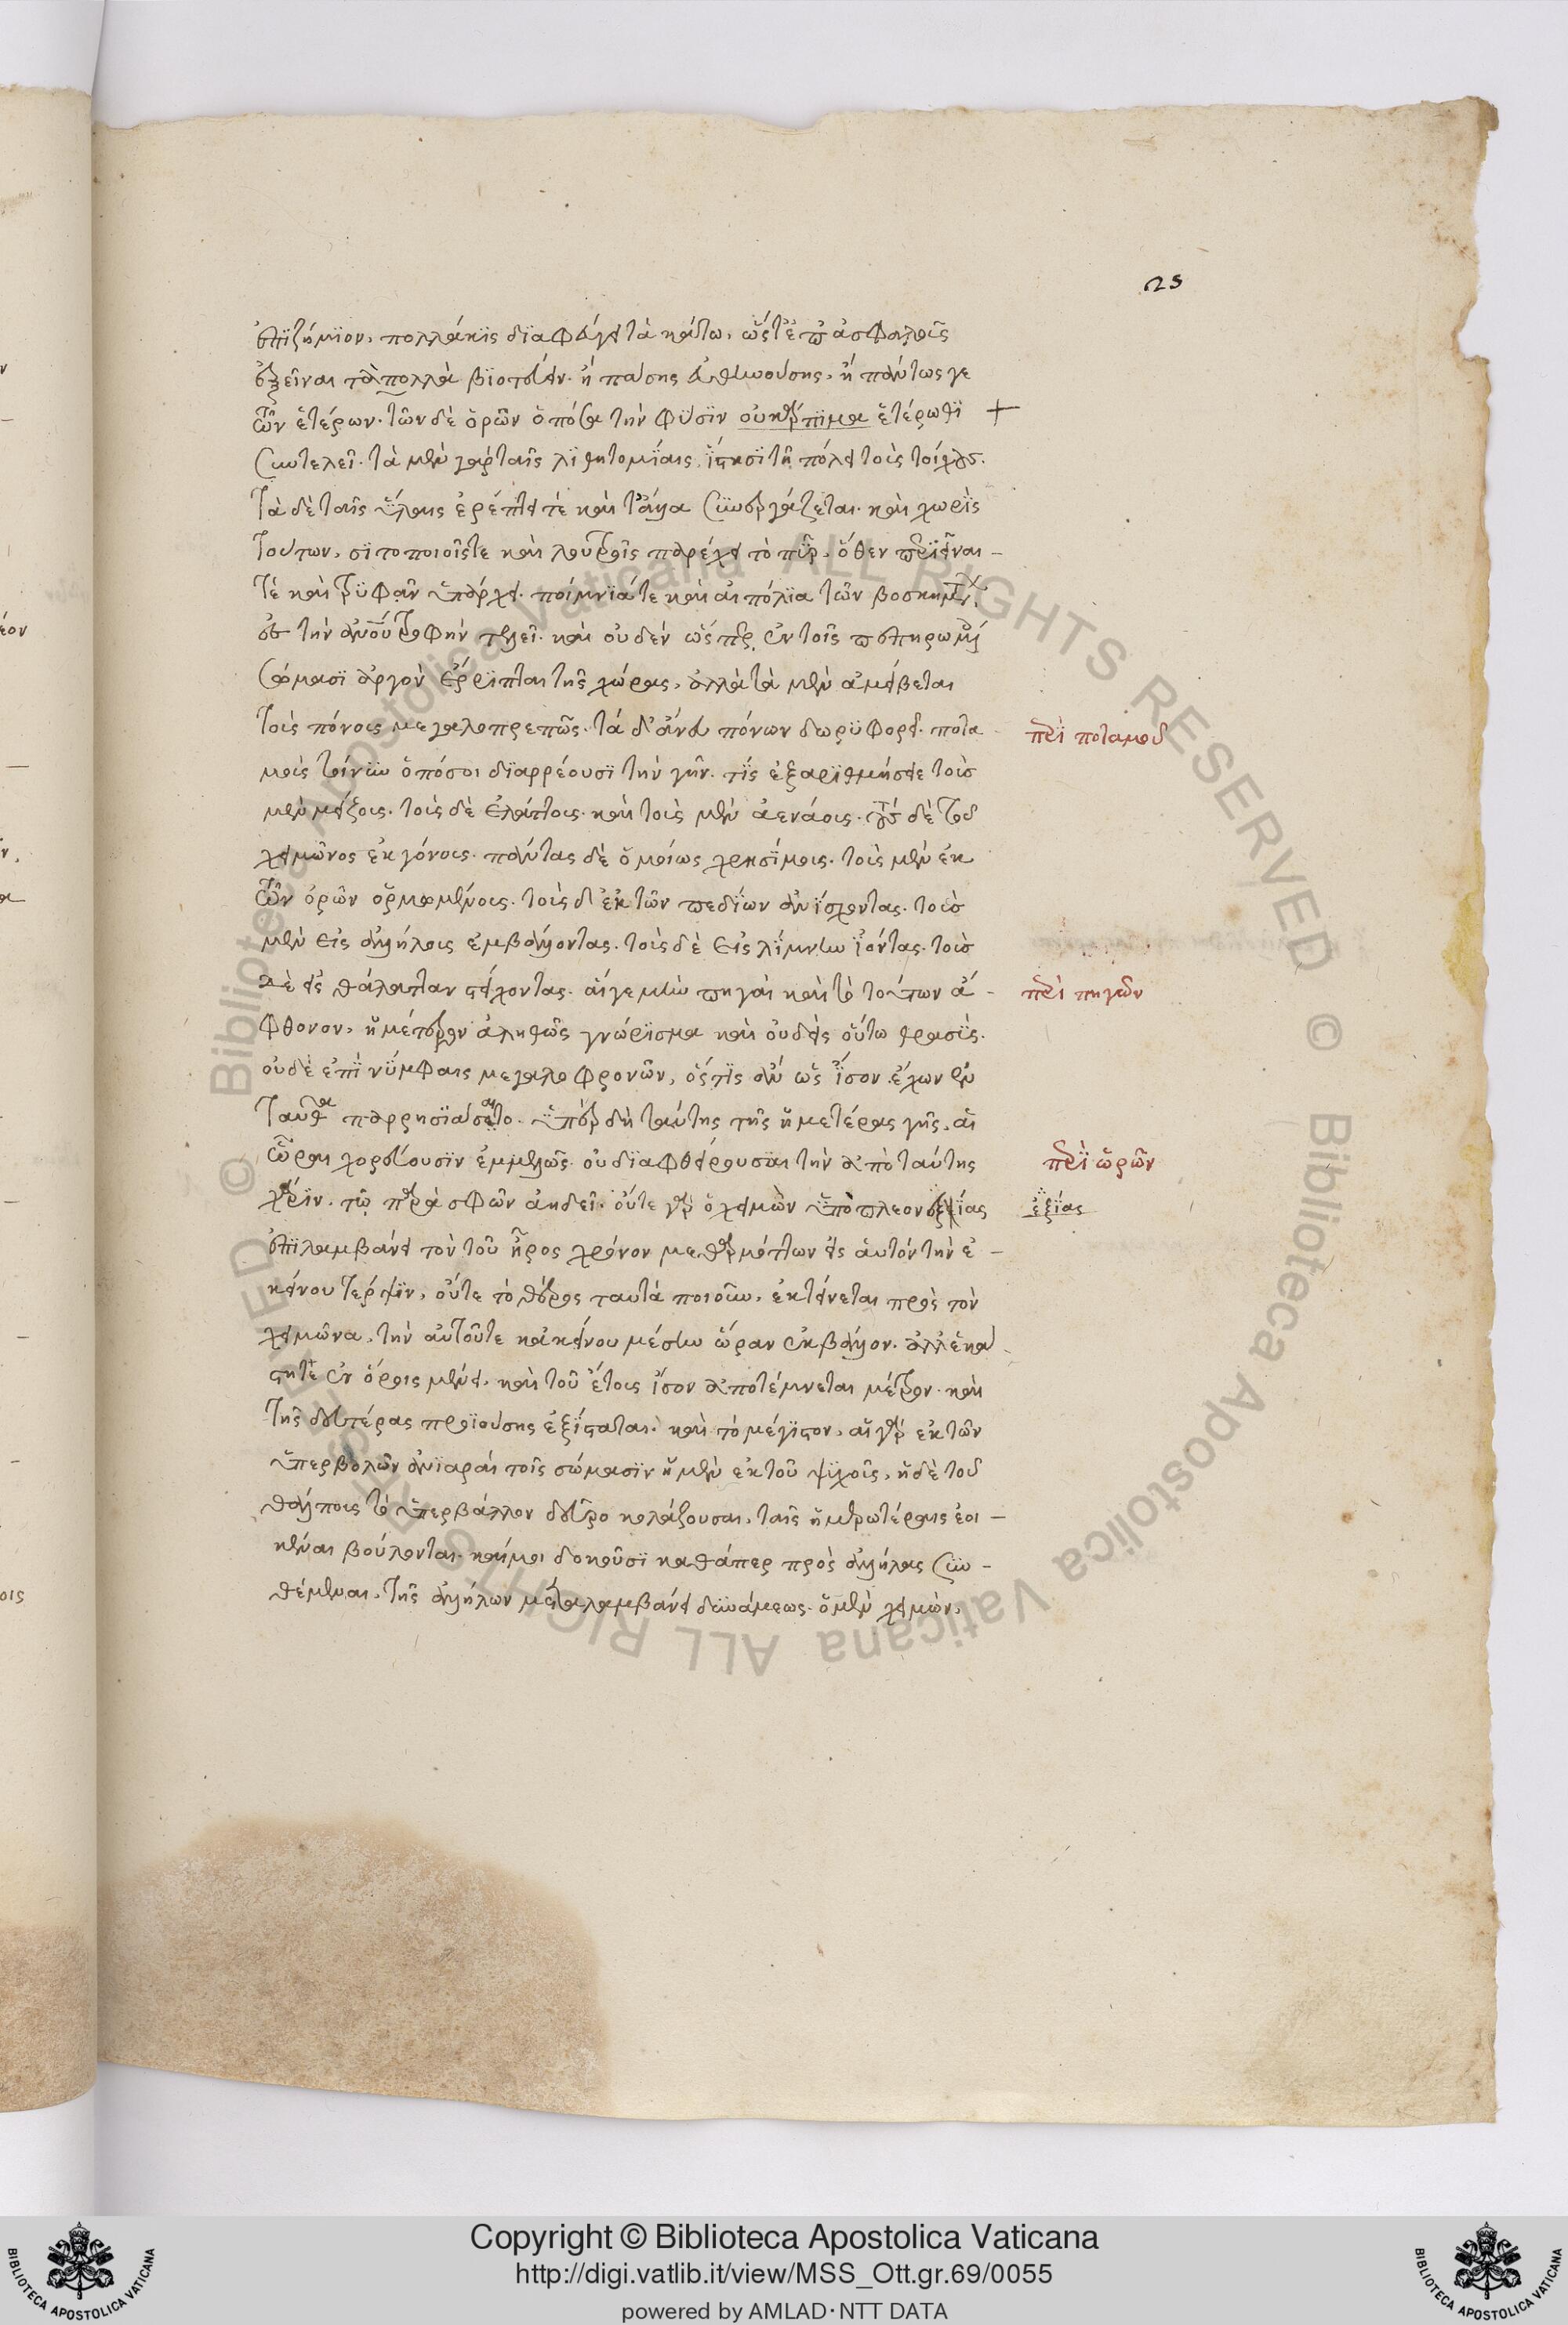 25
ἐπιζήμιον, πολλάκις διαφύγει τὰ κάτω, ὥστε ἐπ' ἀσφαλοῦς
ἐξεῖναι τὰ πολλὰ βιοτεύειν· ἢ πάσης εὐθηνούσης, ἢ πάντως γε
τῶν ἑτέρων· τῶν δὲ ὀρῶν ὁπόσα τὴν φύσιν οὐχ ἥρπιμα ἑτέρωθι +
συντελεῖ· τὰ μὲν γὰρ ταῖς λιθοτομίαις ἵστησι τῇ πόλει τοὺς τοίχους.
τὰ δὲ ταῖς ὕλαις ἐρέπτει τὲ καὶ τἄλλα συνεργάζεται· καὶ χωρὶς
τούτων, σιτοποιοῖς τε καὶ λουτροῖς παρέχει τὸ πῦρ, ὅθεν περιεῖναι -
τὲ καὶ τρυφᾶν ὑπάρχει· ποίμνιά τε καὶ αἰπόλια τῶν βοσκημάτων
εἰς τὴν ἀνθρώπου τροφὴν τελεῖ· καὶ οὐδὲν ὥσπερ ἐν τοῖς πεπηρωμένοις
σώμασι ἀργὸν ἔρριπται τῆς χώρας, ἀλλὰ τὰ μὲν ἀμείβεται
τοὺς πόνους μεγαλοπρεπῶς· τὰ δ' ἄνευ πόνων δωρυφορεῖ· ποτα
περὶ ποταμοῦ
μοὺς τοίνυν ὁπόσοι διαρρέουσι τὴν γῆν· τίς ἐξαριθμήσειε τοὺς
μὲν μείζους· τοὺς δὲ ἐλάττους· καὶ τοὺς μὲν ἀενάους· τοὺς δὲ τοῦ
χειμῶνος ἐκγόνους· πάντας δὲ ὁμοίως χρησίμους· τοὺς μὲν ἐκ
τῶν ὀρῶν ὁρμωμένους· τοὺς δ' ἐκ τῶν πεδίων ἀνίσχοντας· τοὺς
μὲν εἰς ἀλλήλους ἐμβάλλοντας· τοὺς δὲ εἰς λίμνην ἰόντας· τοὺς
δὲ εἰς θάλατταν στείχοντας· αἵ γε μὴν πηγαὶ καὶ τὸ τούτων ἄ -
περὶ πηγῶν
φθονον, ἡμέτερον ἀληθῶς γνώρισμα καὶ οὐδεὶς οὕτω θρασὺς.
οὐδὲ ἐπὶ νύμφαις μεγαλοφρονῶν, ὅστις ἂν ὡς ἴσον ἔχων ἐν
ταῦθα παρρησιάσαιτο· ὑπὲρ δὴ ταύτης τῆς ἡμετέρας γῆς, αἱ
ὧραι χορεύουσιν ἐμμελῶς· οὐ διαφθείρουσαι τὴν ἀπὸ ταύτης
περὶ ὡρῶν
χάριν· τῷ παρὰ σφῶν ἀηδεῖ· οὔτε γὰρ ὁ χειμὼν ὑπὸ πλεονεξίας
ἐξίας
ἐπιλαμβάνει τὸν τοῦ ἦρος χρόνον μεθαρμόττων εἰς αὑτὸν τὴν ἐ -
κείνου τέρψιν, οὔτε τὸ θέρος ταυτὰ ποιοῦν, ἐκτείνεται πρὸς τὸν
χειμῶνα, τὴν αὐτοῦ τε κἀκείνου μέσην ὥραν ἐκβάλλον· ἀλλ' ἑκά -
στη τε ἐν ὅροις μένει, καὶ τοῦ ἔτους ἴσον ἀποτέμνεται μέτρον· καὶ
τῆς δευτέρας προϊούσης ἐξίσταται· καὶ τὸ μέγιστον, αἱ γὰρ ἐκ τῶν
ὑπερβολῶν ἀνιαραὶ τοῖς σώμασιν ἡ μὲν ἐκ τοῦ ψύχους, ἡ δὲ τοῦ
θάλπους τὸ ὑπερβάλλον δεῦρο κολάζουσαι, ταῖς ἡμερωτέραις ἐοι -
κέναι βούλονται· καί μοι δοκοῦσι καθάπερ πρὸς ἀλλήλας συν -
θέμεναι, τῆς ἀλλήλων μεταλαμβάνει δυνάμεως· ὁ μὲν χειμὼν,
Copyright © Biblioteca Apostolica Vaticana
http://digi.vatlib.it/view/MSS_Ott.gr.69/0055
powered by AMLAD·NTT DATA